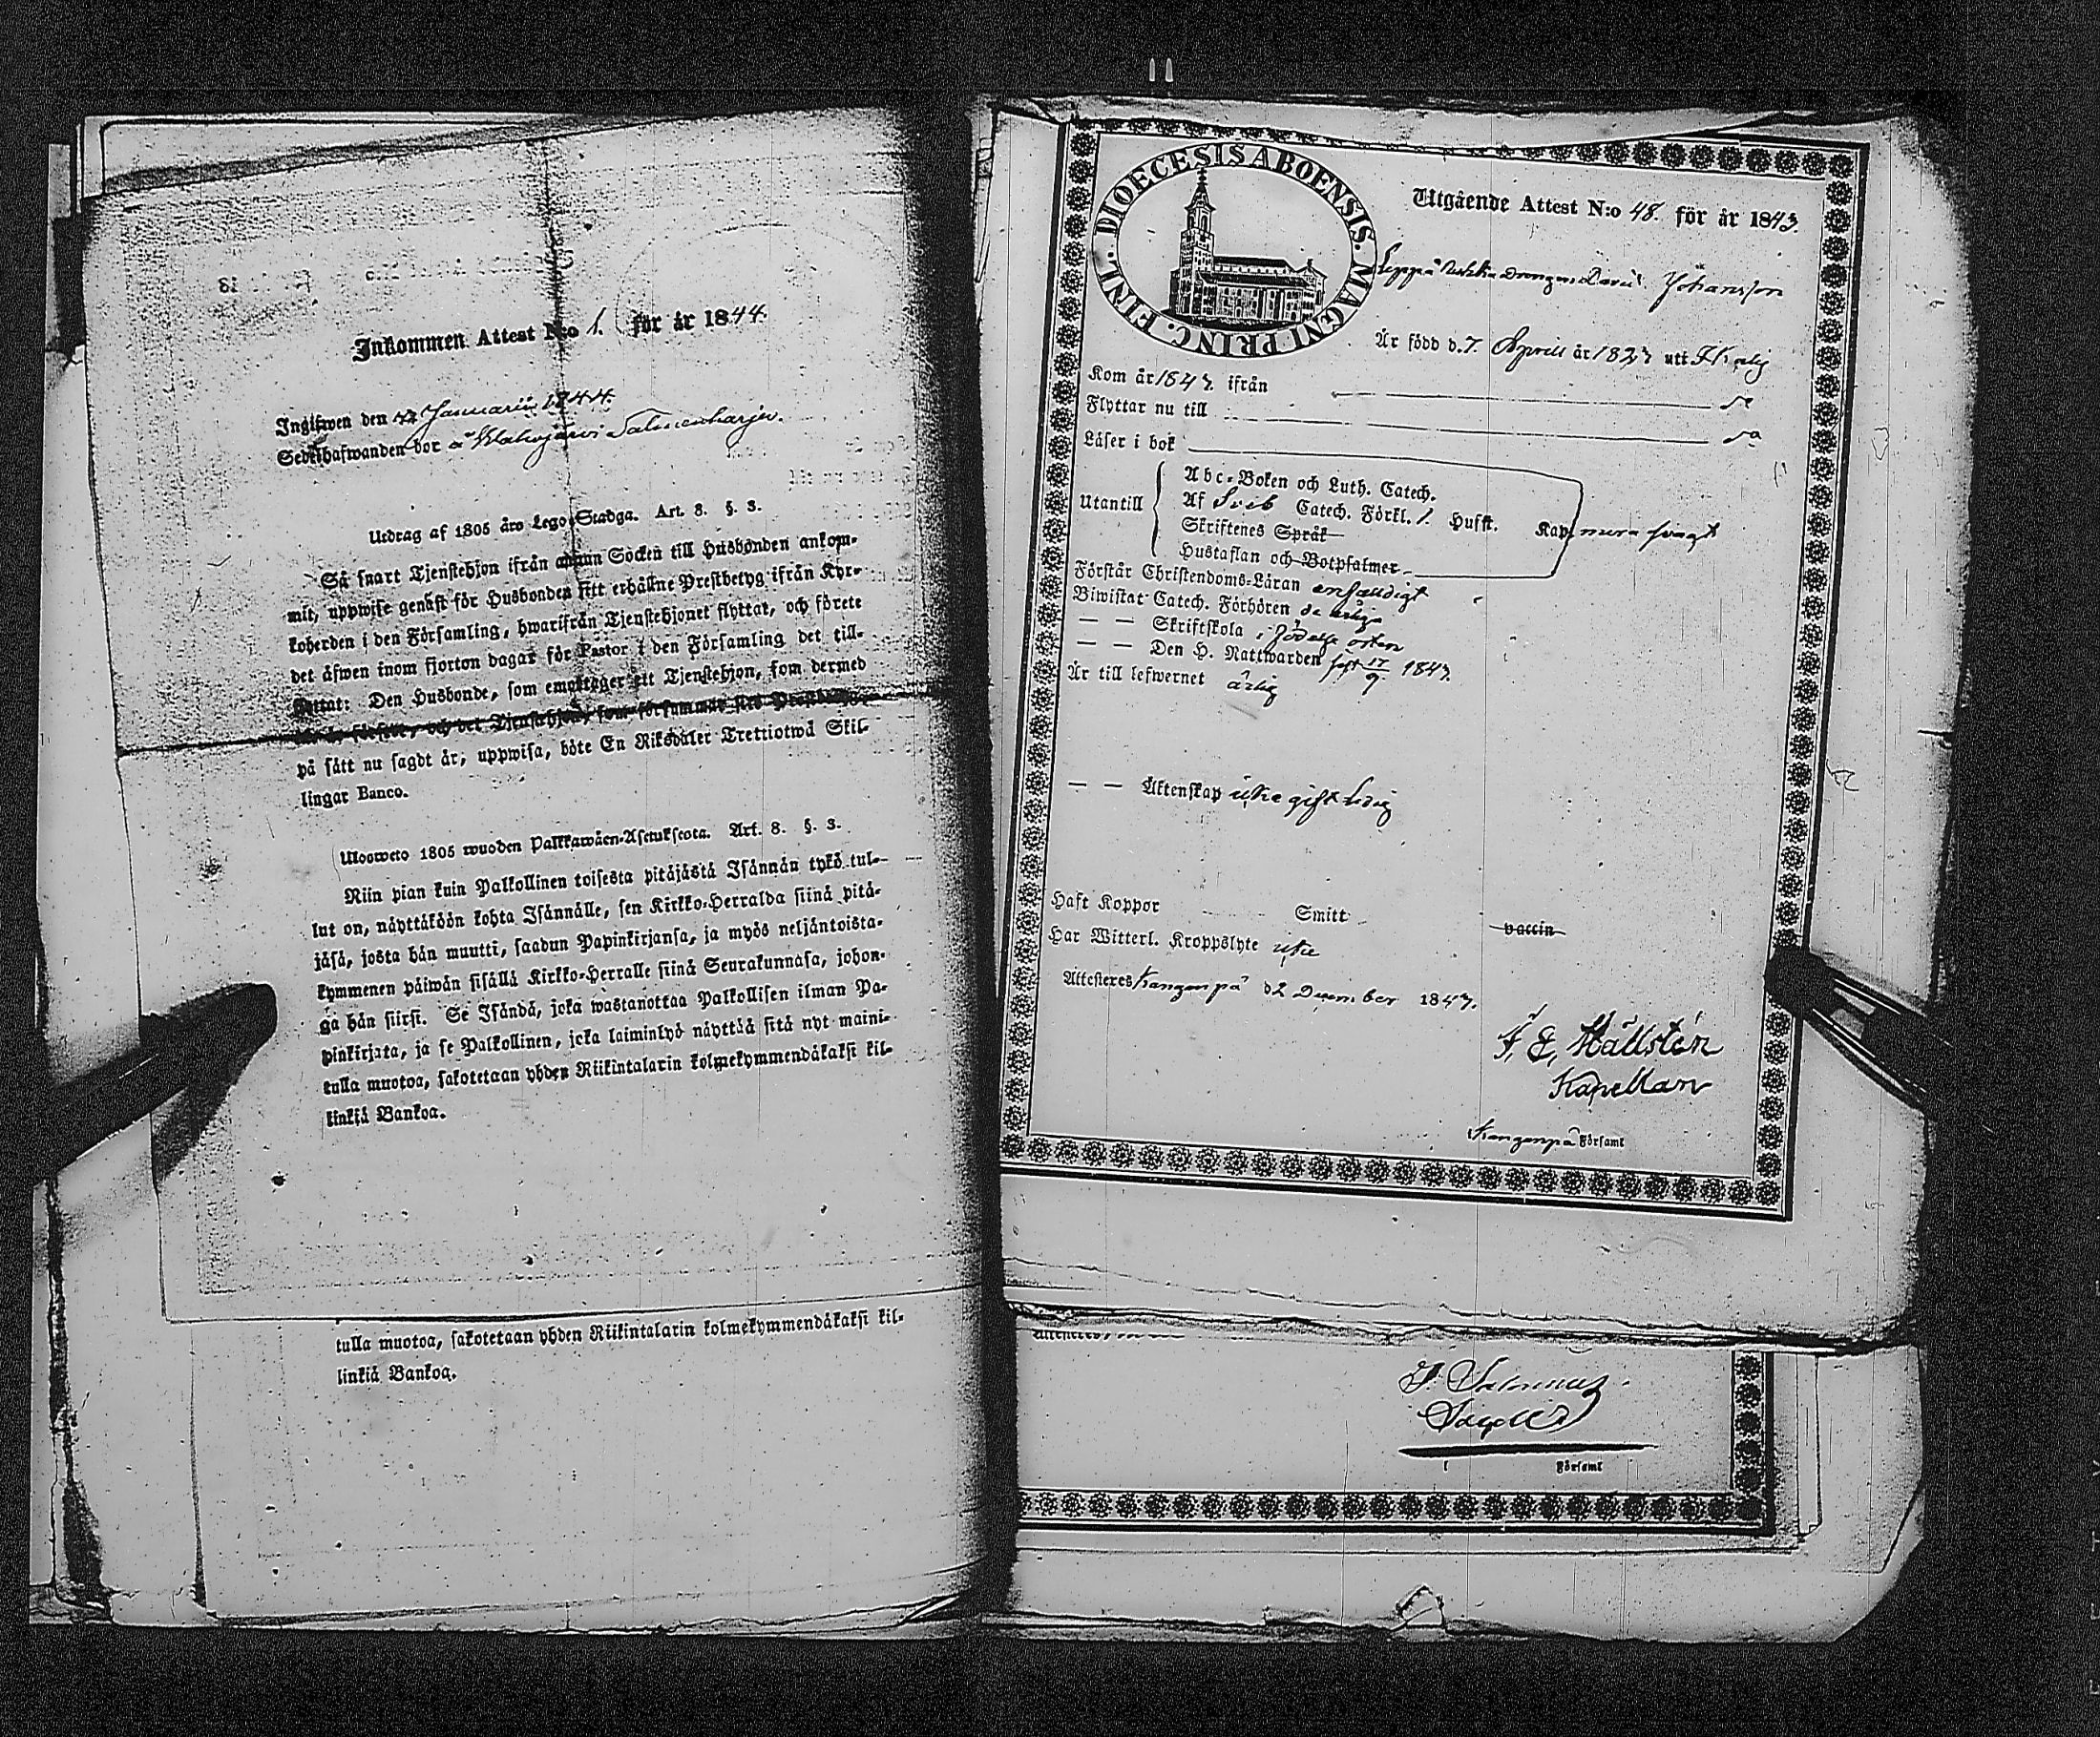 Inkommen Attest N:o 1. för år 1844.
Ingifwen den Januarii 1844.
Sedelhafwanden bor å
Utdrag af 1805 års Lego-Stadga. Art. 8. §. 3.
Så snart Tjenstehjon ifrån annan Socken till Husbonden ankom-
mit, uppwise genast för Husbonden sitt erhållne Prestbetyg ifrån Kyr-
koherden i den Församling, hwarifrån Tjenstehjonet flyttat, och förete
det äfwen inom fjorton dagar för Pastor i den Församling det till-
flyttat: Den Husbonde, som emottager ett Tjenstehjon, som dermed
och det Tjenstehjon, som försummar sitt Prestbetyg
på sätt nu sagdt är, uppwisa, böte En Riksdaler Trettiotwå Skil-
lingar Banco.
Ulosweto 1805 wuoden Palkkawäen-Asetuksesta. Art. 8. §. 3.
Niin pian kuin Palkollinen toisesta pitäjästä Isännän tykö tul-
lut on, näyttäköön kohta Isännälle, sen Kirkko-Herralda siinä pitä-
jäsä, josta hän muutti, saadun Papinkirjansa, ja myös neljäntoista-
kymmenen päiwän sisällä Kirkko-Herralle siinä Seurakunnasa, johon-
ga hän siirsi. Se Isändä, joka wastanottaa Palkollisen ilman Pa-
pinkirjata, ja se Palkollinen, joka laiminlyö näyttää sitä nyt maini-
tulla muotoa, sakotetaan yhden Riikintalarin kolmekymmendäkaksi kil-
linkiä Bankoa.
tulla muotoa, sakotetaan yhden Riikintalarin kolmekymmendäkaksi kil-
linkiä Bankoa.
DIOECESIS ABOENSIS. MAGNI PRINC. FINL.
Utgående Attest N:o 48. för år 1843.
Drengen David Johansson
Är född d. 7. April år 1823 uti
Kom år 1843 ifrån
Flyttar nu till
Läser i bok
Utantill
Abc-Boken och Luth. Catech.
Af Sveb Catech. Förkl. 1. Hufst. Kap. svagt
Skriftenes Språk
Hustaflan och Botpsalmer
Förstår Christendoms-Läran enfaldigt
Biwistat Catech. Förhören
— — Skriftskola i födelse orten
— — Den H. Nattwarden sist 17/9 1843.
Är till lefwernet ärlig
— — Äktenskap icke gift ledig
Haft Koppor Smitt vaccin
Har Witterl. Kroppslyte icke
Attesteres Kangenpä d 2 December 1843.
F. E. Hällstén
Kapellan
i Kangenpä Församl
Attesteres
i Församl